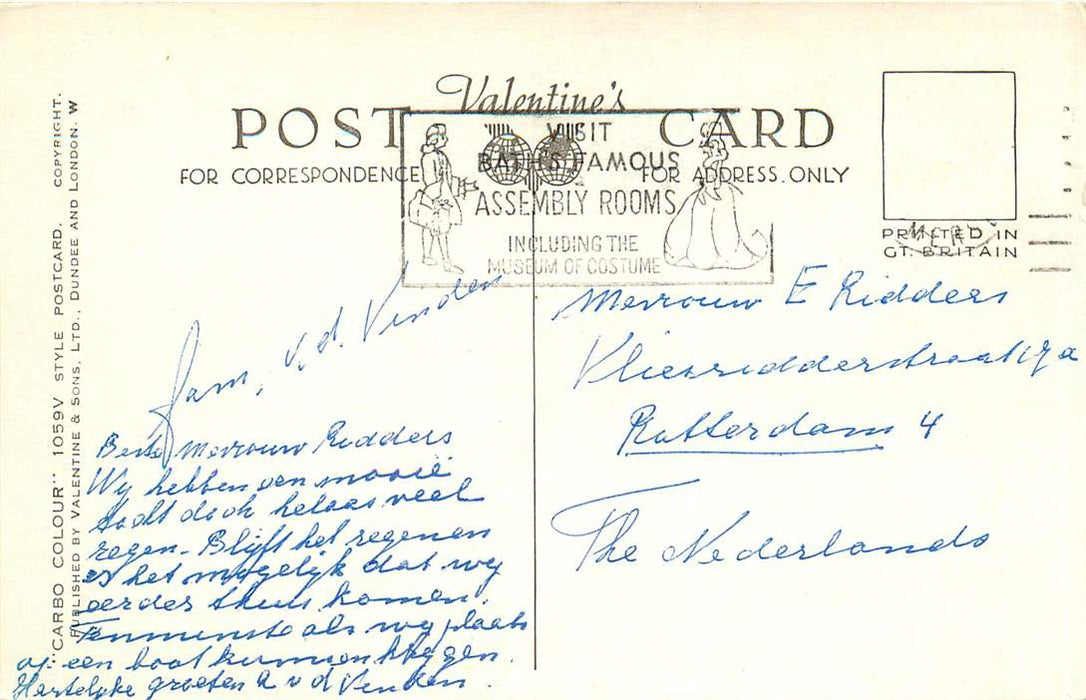 Valentine's
POST CARD
FOR CORRESPONDENCE
FOR ADDRESS ONLY
VISIT
BATH'S FAMOUS
ASSEMBLY ROOMS
INCLUDING THE
MUSEUM OF COSTUME
PRINTED IN
GT. BRITAIN
"CARBO COLOUR" 1059V STYLE POSTCARD. COPYRIGHT.
PUBLISHED BY VALENTINE & SONS, LTD., DUNDEE AND LONDON. W
Fam, v.d. Venden
Beste Mevrouw Ridders
Wy hebben een mooie
stadt doch helaas veel
regen. Blijft het regenen
is het mogelijk dat wy
eerder thuis komen.
Tenminste als wy plaats
op een boot kunnen krygen.
Hartelyke groeten A v d Venden.
Mevrouw E Ridders
Rotterdam 4
The Nederlands